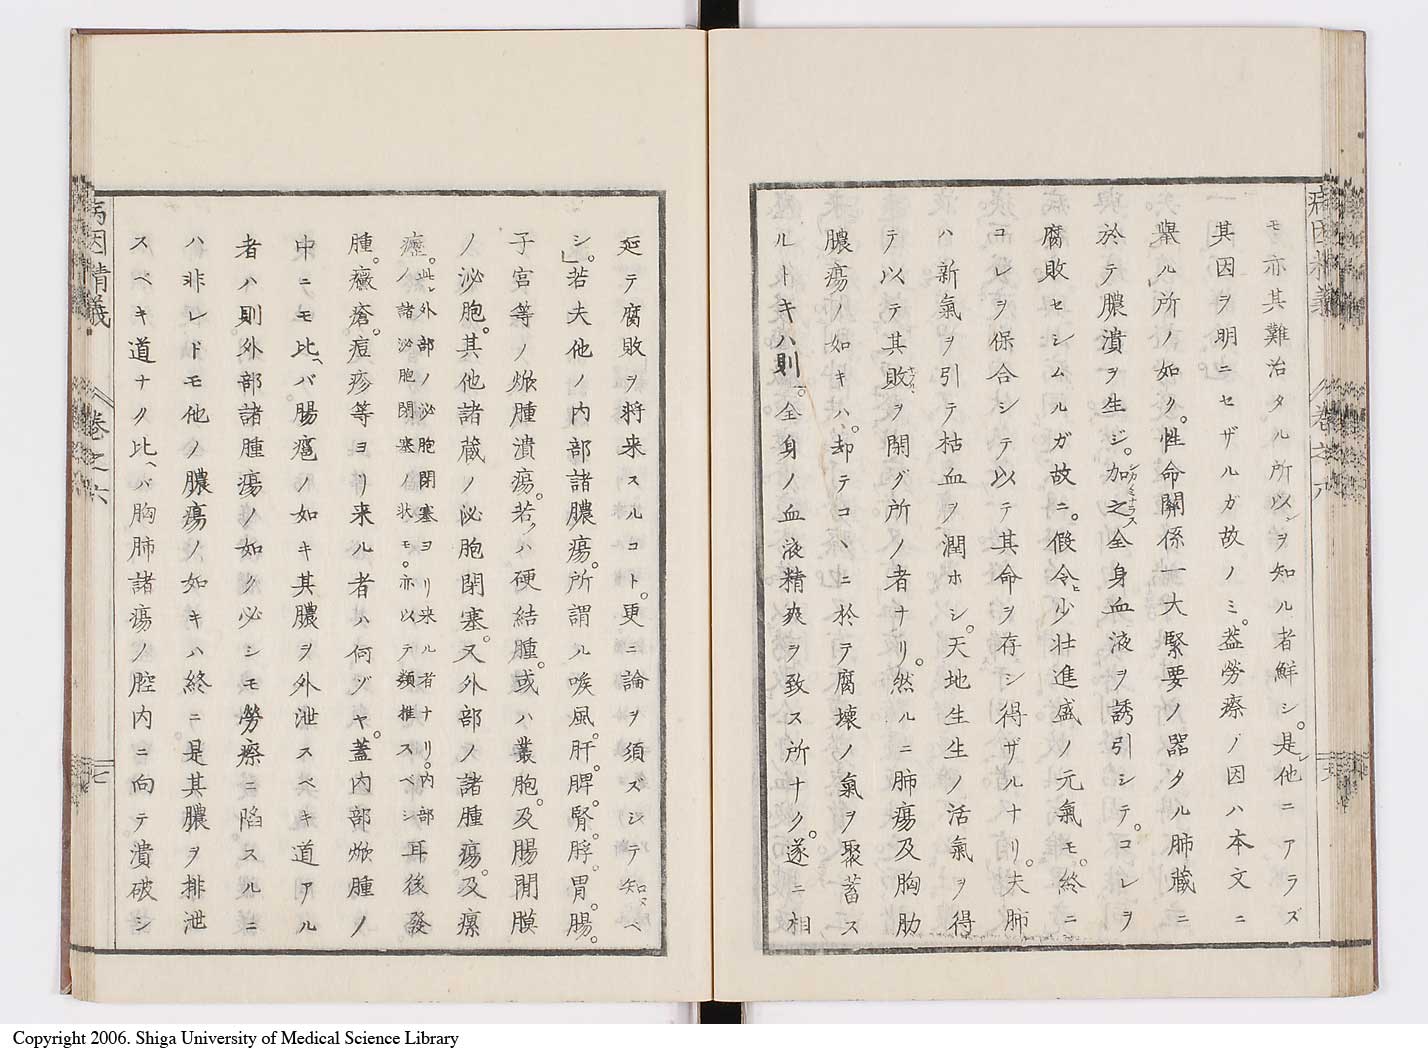 モ亦其難治タル所以ヲ知ル者鮮シ。是レ他ニアラズ
其因ヲ明ニセザルガ故ノミ。蓋勞瘵ノ因ハ本文ニ
擧ル所ノ如ク。性命關係一大緊要ノ器タル肺藏ニ
於テ膿潰ヲ生ジ。加之全身血液ヲ誘引シテ。コレヲ
腐敗セシムルガ故ニ。假令ヒ少壮進盛ノ元氣モ。終ニ
コレヲ保合シテ以テ其命ヲ存シ得ザルナリ。夫肺
ハ新氣ヲ引テ枯血ヲ潤ホシ。天地生生ノ活氣ヲ得
テ以テ其敗ヲ閑グ所ノ者ナリ。然ルニ肺瘍及胸肋
膿瘍ノ如キハ。却テコヽニ於テ腐壊ノ氣ヲ聚蓄ス
ルトキハ則。全身ノ血液精爽ヲ致ス所ナク。遂ニ相
病因精義 卷之六
七
延テ腐敗ヲ将来スルコト。更ニ論ヲ須ズシテ知ベ
シ。若夫他ノ内部諸膿瘍。所謂ル喉風。肝。脾。腎。脬。胃。腸。
子宮等ノ焮腫潰瘍。若クハ硬結腫。或ハ叢胞。及腸間膜
ノ泌胞。其他諸蔵ノ泌胞閉塞。又外部ノ諸腫瘍。及瘰
癧。此レ外部ノ泌胞閉塞ヨリ来ル者ナリ。内部
ノ諸泌胞閉塞ノ状モ。亦以テ類推スベシ耳後發
腫。癥瘡。痘疹等ヨリ来ル者ハ何ゾヤ。蓋内部焮腫ノ
中ニモ比バ腸癰ノ如キ其膿ヲ外泄スベキ道アル
者ハ則外部諸腫瘍ノ如ク必シモ勞瘵ニ陷スルニ
ハ非レドモ他ノ膿瘍ノ如キハ終ニ是其膿ヲ排泄
スベキ道ナク比バ胸肺諸瘍ノ腔内ニ向テ潰破シ
Copyright 2006. Shiga University of Medical Science Library